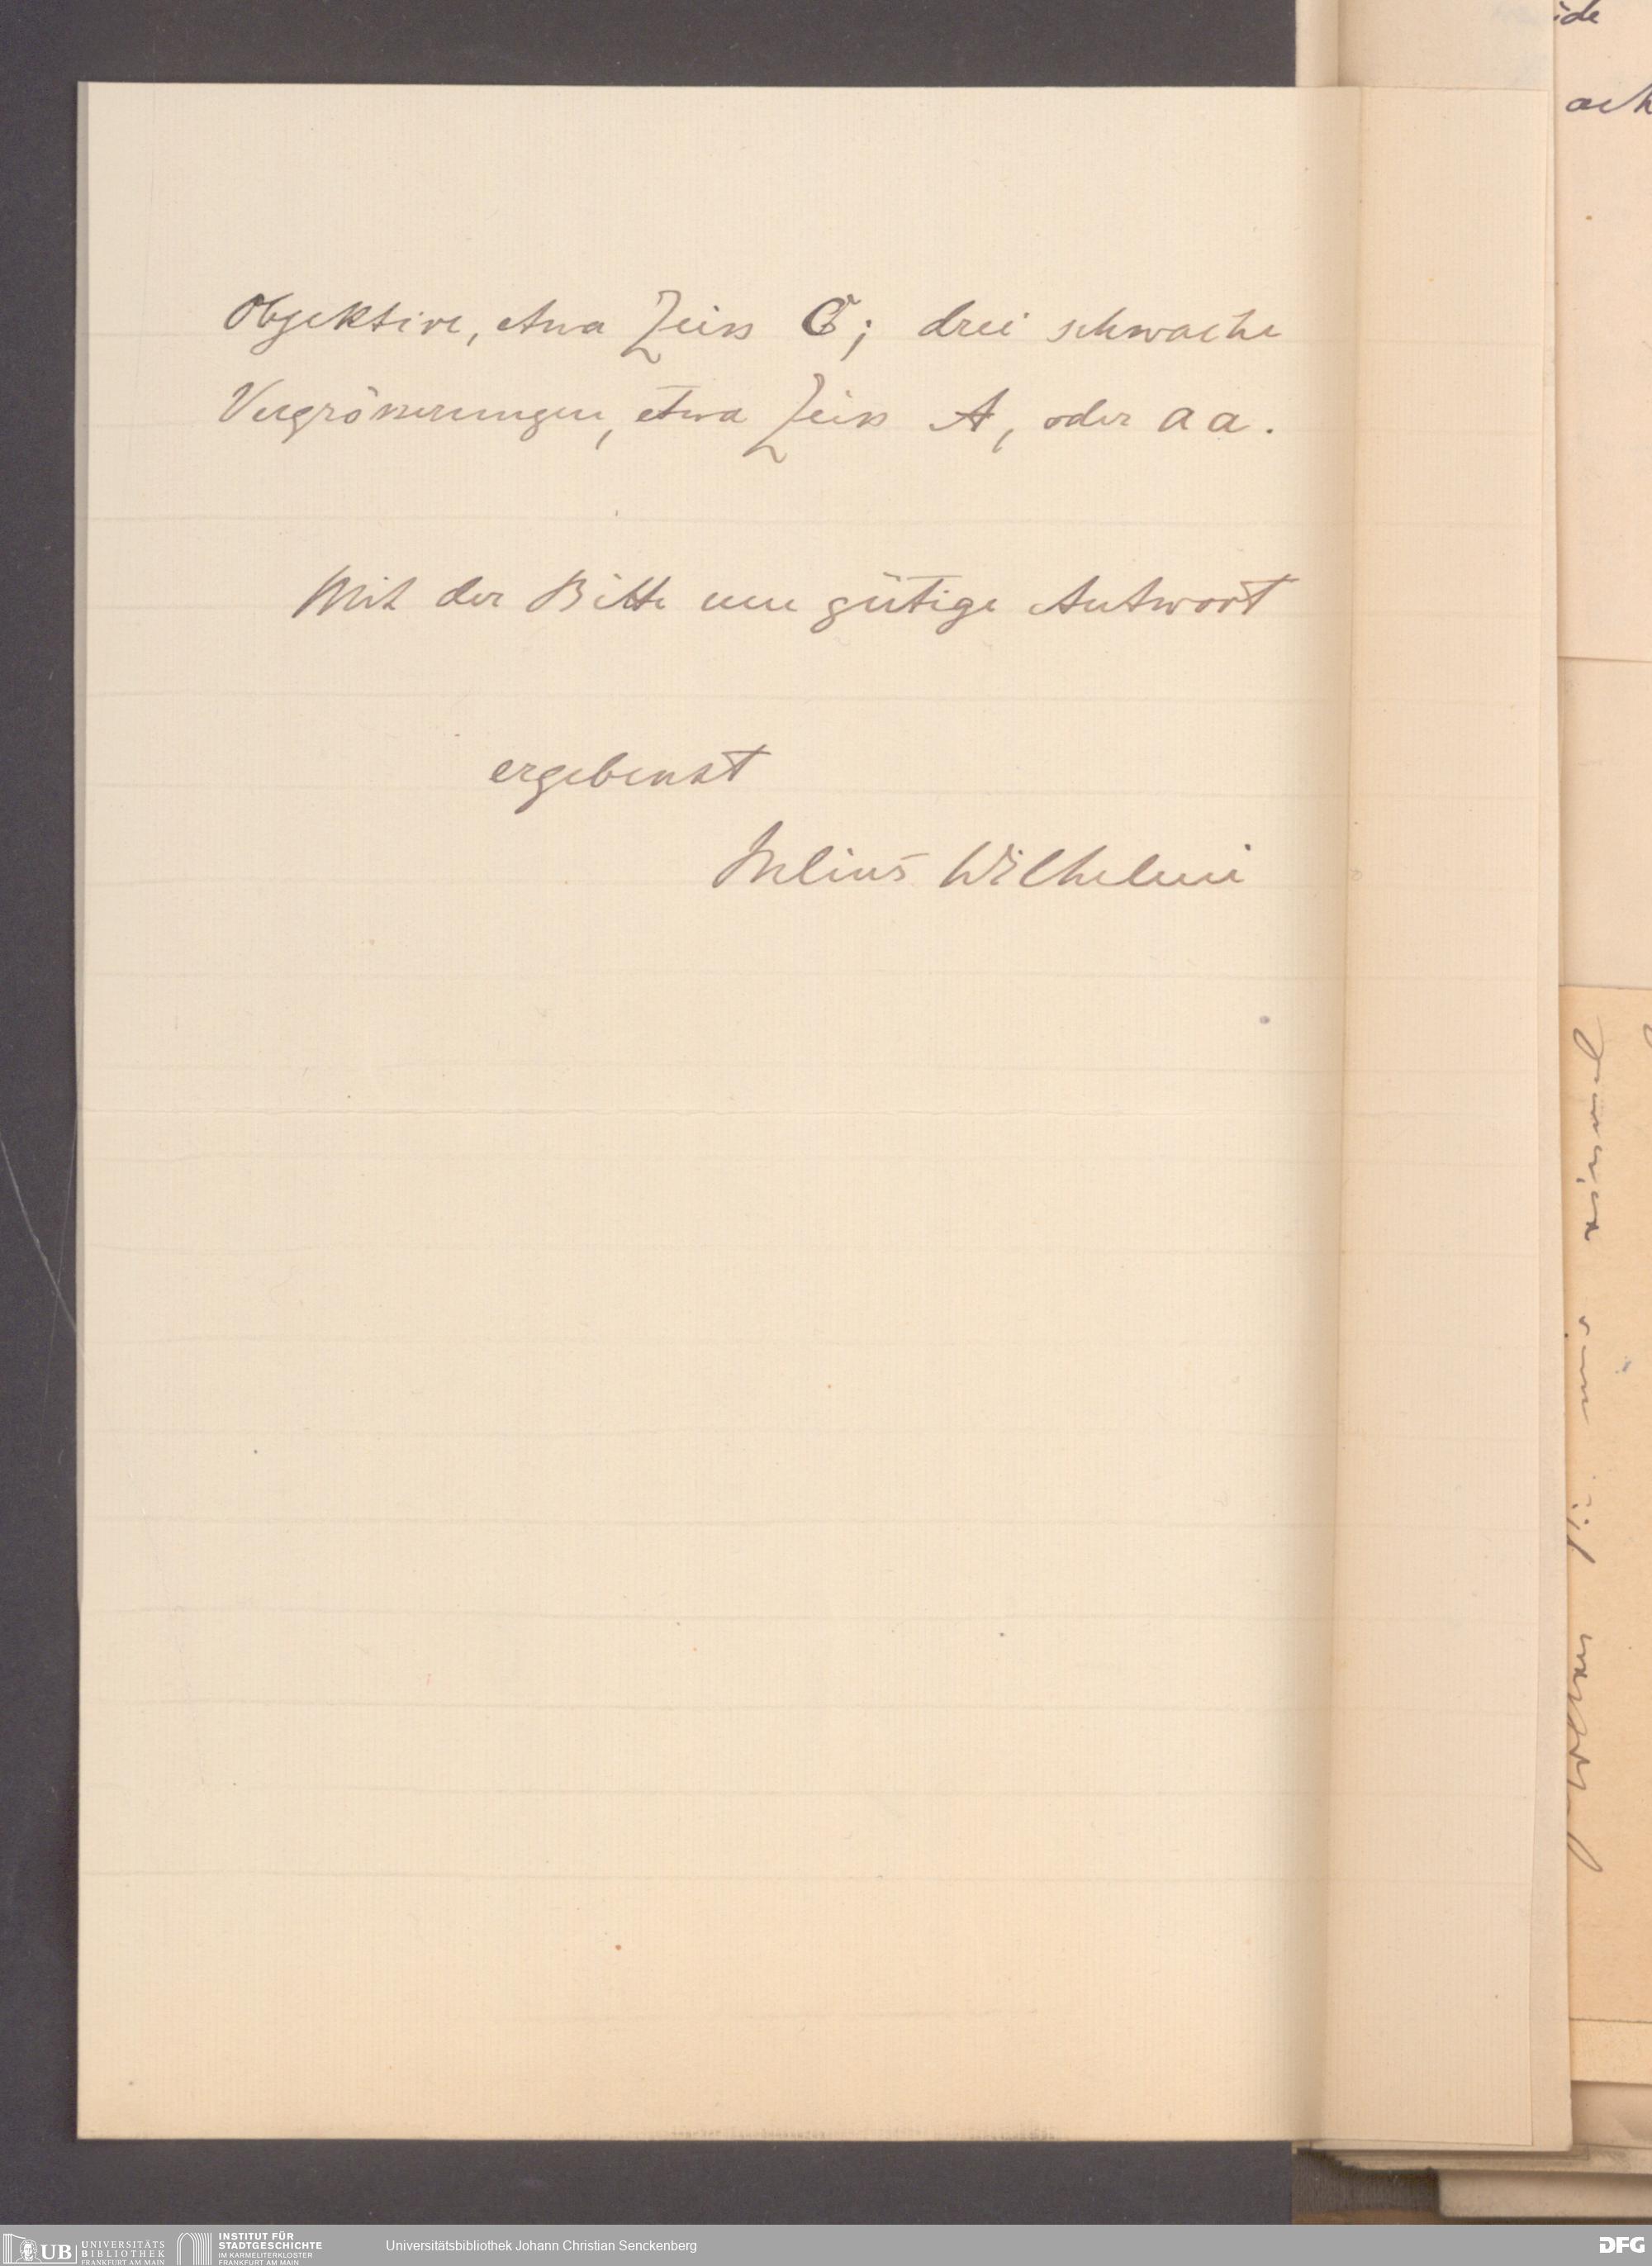 Objektive, etwa Zeiss C; drei schwache
Vergrösserungen, etwa Zeiss A, oder aa.
Mit der Bitte um gütige Antwort
ergebenst
Julius Wilhelmi
ide
UB UNIVERSITÄTS
BIBLIOTHEK
FRANKFURT AM MAIN
INSTITUT FÜR
STADTGESCHICHTE
IM KARMELITERKLOSTER
FRANKFURT AM MAIN
Universitätsbibliothek Johann Christian Senckenberg
DFG